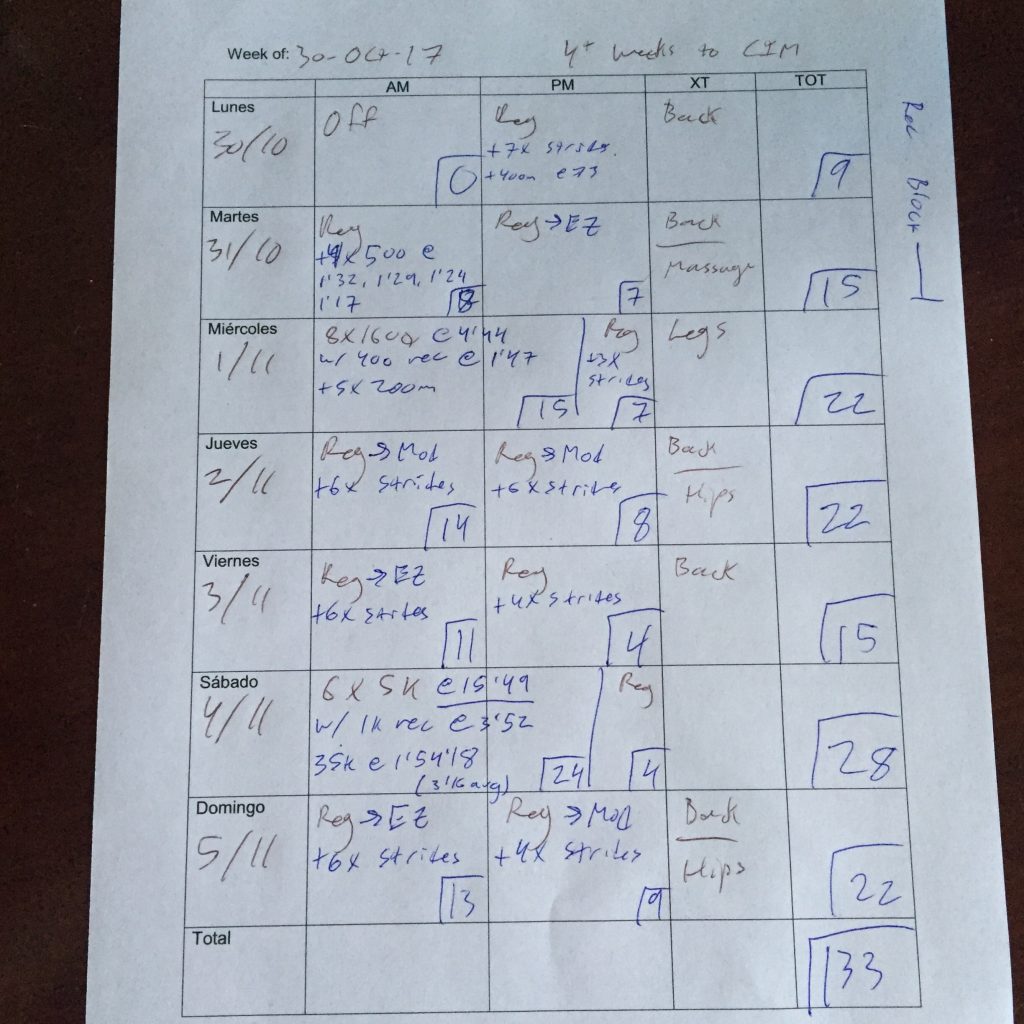 Week of: 30-Oct-17 4+ weeks to CIM
AM PM XT TOT
Lunes
30/10
Off
0
Reg
+7x strides.
+400m @ 73
Back
9
Rec Block
Martes
31/10
Reg
+4x500 @
1'32, 1'29, 1'24
1'17
8
Reg→EZ
7
Back
Massage
15
Miércoles
1/11
8x1600 @ 4'44
w/ 400 rec @ 1'47
+5x200m
15
Reg
+3x
strides
7
Legs
22
Jueves
2/11
Reg→Mod
+6x strides
14
Reg→Mod
+6x strides
8
Back
Hips
22
Viernes
3/11
Reg→EZ
+6x strides
11
Reg
+4x strides
4
Back
15
Sábado
4/11
6 x 5K @ 15'49
w/ 1K rec @ 3'52
35K @ 1'54'18
(3'16 avg)
24
Reg
4
28
Domingo
5/11
Reg→EZ
+6x strides
13
Reg→Mod
+4x strides
9
Back
Hips
22
Total
133